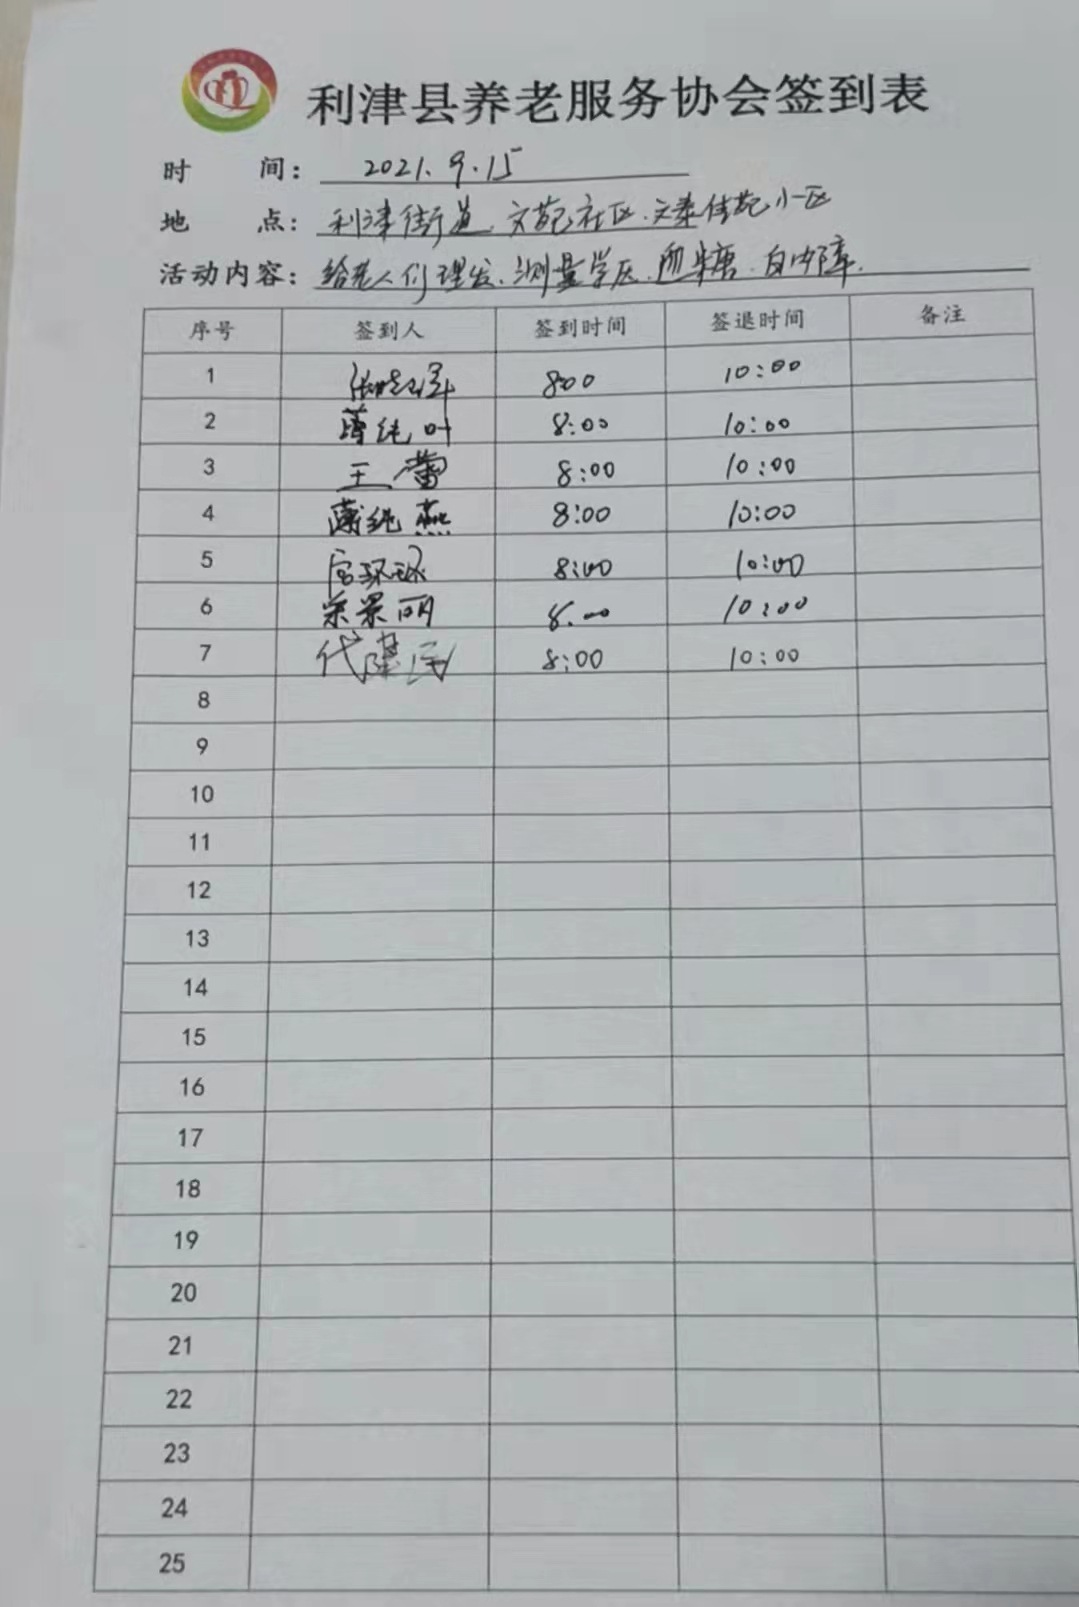 利津县养老服务协会签到表
时 间: 2021.9.15
地 点: 利津街道、文苑社区、文泰佳苑小区
活动内容: 给老人们理发、测量学压、血糖、白内障.
序号 签到人 签到时间 签退时间 备注
1 8:00 10:00
2 薄纯叶 8:00 10:00
3 王蕾 8:00 10:00
4 薄纯燕 8:00 10:00
5 宫环环 8:00 10:00
6 景丽 8:00 10:00
7 代 民 8:00 10:00
8
9
10
11
12
13
14
15
16
17
18
19
20
21
22
23
24
25